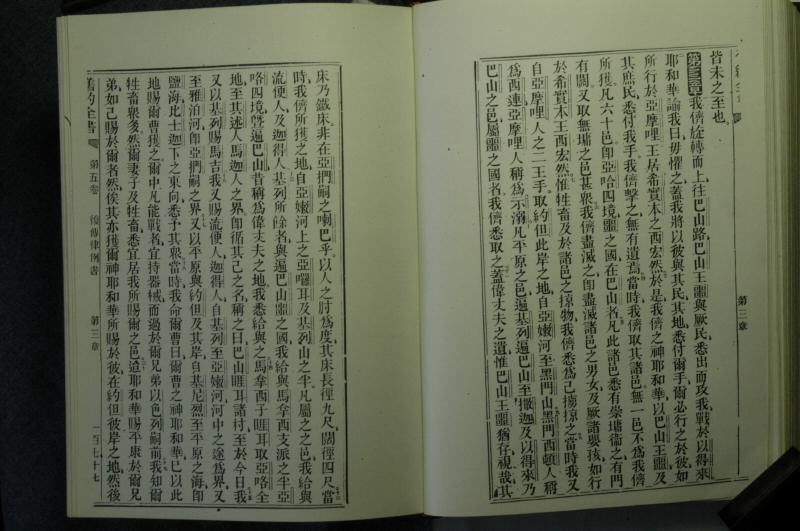 皆未之至也
第三章我儕旋轉而上往巴山路巴山王噩與厥民悉出而攻我戰於以得來
耶和華諭我曰毋懼之蓋我將以彼與其民其地悉付爾手爾必行之於彼如
所行於亞摩哩王居希實本之西宏然於是我儕之神耶和華以巴山王噩及
其庶民悉付我手我儕擊之無有遺焉當時我儕取其諸邑無一邑不為我儕
所獲凡六十邑即亞哈四境噩之國在巴山者凡此諸邑悉有崇墉衞之有門
有閞又取無墉之邑甚衆我儕盡滅之即盡滅諸邑之男女及厥諸嬰孩如行
於希實本王西宏然惟牲畜及於諸邑之掠物我儕悉為己擄掠之當時我又
自亞摩哩人之二王手取約但此岸之地自亞嫩河至黑門山黑門西頓人稱
為西連亞摩哩人稱為示溺凡平原之邑遍基列遍巴山至撒迦及以得來乃
巴山之邑屬噩之國者我儕悉取之蓋偉丈夫之遺惟巴山王噩猶存視哉其
第三章
床乃鐵床非在亞捫嗣之喇巴乎以人之肘為度其床長徑九尺闊徑四尺當
時我儕所獲之地自亞嫩河上之亞囉耳及基列山之半凡屬之之邑我給與
流便人及迦得人基列所餘者與遍巴山噩之國我給與馬拿西支派之半亞
咯四境曁遍巴山昔稱為偉丈夫之地我悉給與之馬拿西子睚耳取亞咯全
地至其述人馬迦人之界即循其己之名稱之曰巴山睚耳諸村至於今日我
又以基列賜馬吉我又賜流便人迦得人自基列至亞嫩河河中之途為界又
至雅泊河即亞捫嗣之界又以平原與約但及其岸自基尼烈至平原之海即
鹽海比士迦下之東向悉予其衆當時我命爾曹曰爾曹之神耶和華已以此
地賜爾曹獲之爾中凡能戰者宜持器械而過於爾兄弟以色列嗣前我知爾
牲畜衆多然爾妻子及牲畜悉宜居我所賜爾之邑迨耶和華賜平康於爾兄
弟如己賜於爾者然俟其亦獲爾神耶和華所賜於彼在約但彼岸之地然後
舊約全書 第五卷 復傳律例書 第三章 一百七十七